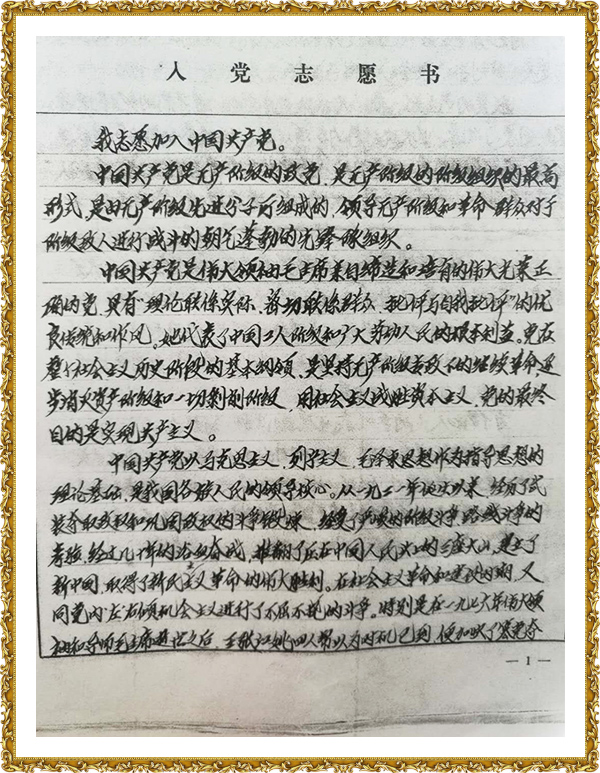 入党志愿书
我志愿加入中国共产党。
中国共产党是无产阶级的政党,是无产阶级的阶级组织的最高
形式,是由无产阶级先进分子所组成的,领导无产阶级和革命群众对于
阶级敌人进行战斗的朝气蓬勃的先锋队组织。
中国共产党是伟大领袖毛主席亲自缔造和培育的伟大光荣正
确的党,具有"理论联系实际、密切联系群众、批评与自我批评"的优
良传统和作风。她代表了中国工人阶级和广大劳动人民的根本利益。党在
整个社会主义历史阶段的基本纲领,是坚持无产阶级专政下的继续革命,逐
步消灭资产阶级和一切剥削阶级,用社会主义战胜资本主义,党的最终
目的是实现共产主义。
中国共产党以马克思主义、列宁主义、毛泽东思想作为指导思想的
理论基础,是我国各族人民的领导核心。从一九二一年诞生以来,经历了武
装夺取政权和巩固政权的斗争锻炼,经受了严峻的阶级斗争、路线斗争的
考验,经过几十年的浴血奋战,推翻了压在中国人民头上的三座大山,建立了
新中国,取得了新民主义革命的伟大胜利。在社会主义革命和建设时期,又
同党内"左"右倾机会主义进行了不屈不挠的斗争。特别是在一九七六年伟大领
袖和导师毛主席逝世之后,王张江姚"四人帮"以为时机已到,便加快了篡党夺
— 1 —